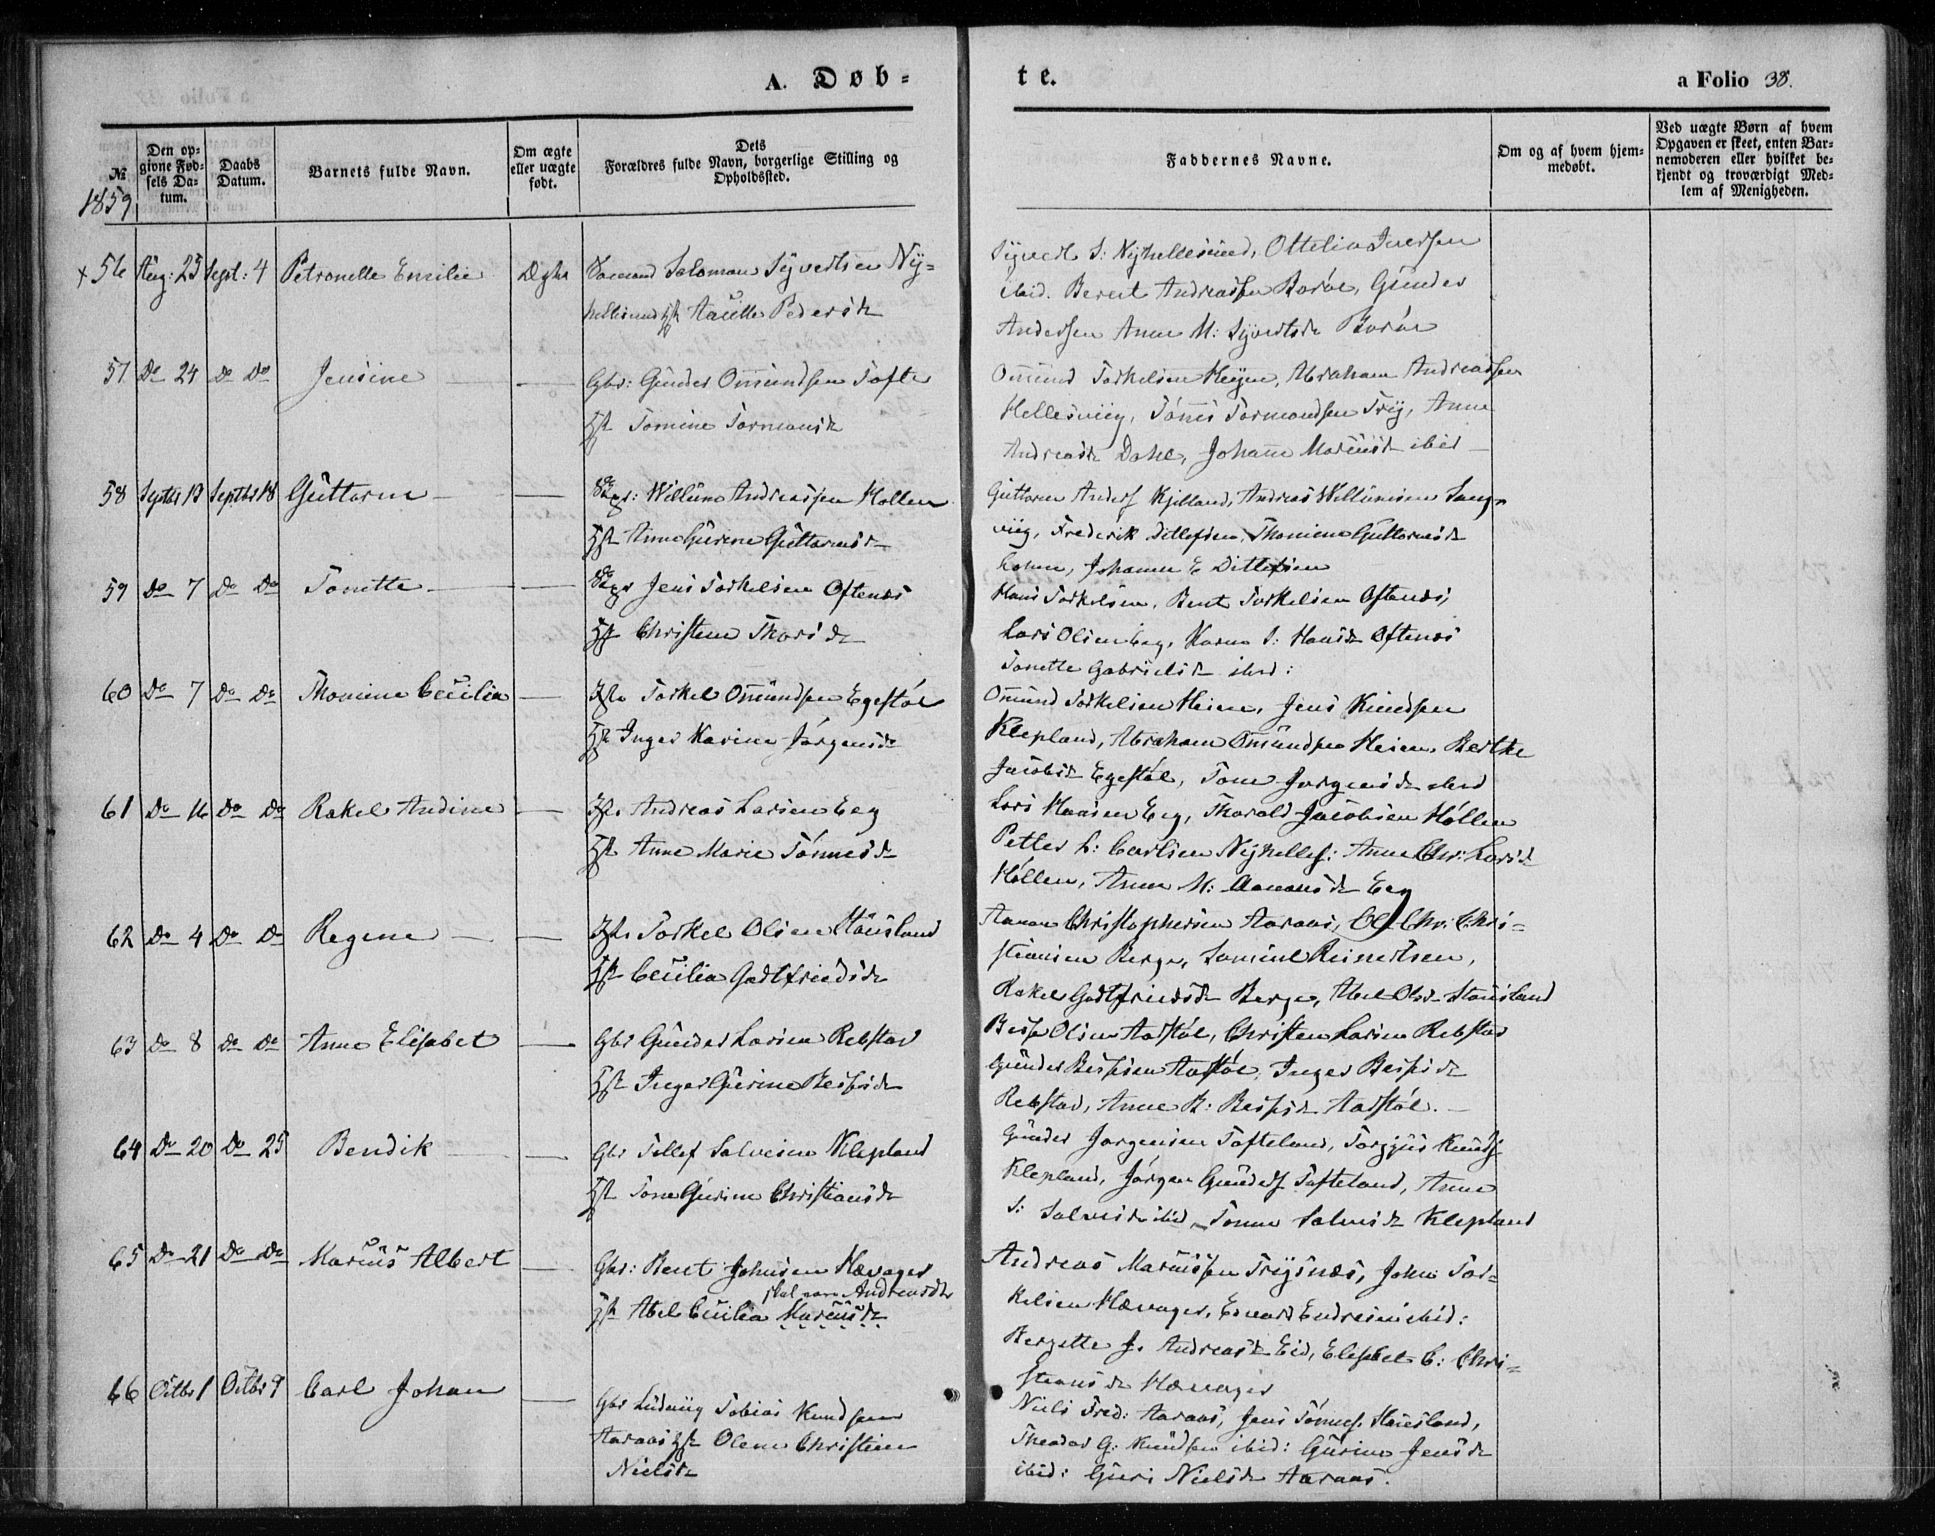 A. Døb-
te.
a Folio 38.
№
1859
Den op-
givne Fød-
sels Da-
tum.
Daabs
Datum.
Barnets fulde Navn.
Om ægte
eller uægte
født.
Dets
Forældres fulde Navn, borgerlige Stilling og
Opholdssted.
Faddernes Navne.
Om og af hvem hjem-
medøbt.
Ved uægte Børn af hvem
Opgaven er skeet, enten Bar-
nemoderen eller hvilket be-
kjendt og troværdigt Med-
lem af Menigheden.
+ 56 Aug: 23 Sept: 4 Petronelle Emilie Salomon Syvertsen Ny-
hellesund Pedersd
Syvert S: Nyhellesund, Ottelia Iversen
ibid. Berent Andreassen Borøe, Gunder
Andersen Anne M: Syvertsd Borøe
57 Do 24 Do Do Jensine Gbr: Gunder Omundsen Tofte
Hst Tomine Tormonsd
Omund Torkelsen Hejen, Abraham Andreassen
Hellesviig, Tønnes Tormondsen Try, Anne
Andreasd Dahl, Johanne Mareusd ibid
58 Septbr 13 Septbr 18 Guttorm Willum Andreassen Hollen
Hst Anne Gurine Guttormsd
Guttorm Anders Kjelland, Andreas Willumsen Lang-
viig, Frederik Ditlefsen, Thomine Guttormsd
Johanne E Ditlefsen
59 Do 7 Do Do Tonette Jens Torkelsen Oftenes
Hst Christene Thorsd
Hans Torkelsen, Bent Torkelsen Oftenes,
Lars Olsen Eeg, Karen S: Hansd Oftenes
Tonette Gabrielsd ibid:
60 Do 7 Do Do Thomine Cecilia Torkel Omundsen Egestøl
Hst Inger Karine Jørgensd
Omund Torkelsen Heien, Jens Knudsen
Klepland, Abraham Omundsen Heien, Berthe
Jacobsd Egestøl, Tone Jørgensd ibid
61 Do 16 Do Do Rakel Andine Andreas Larsen Eeg
Hst Anne Marie Tønnesd
Lars Hansen Eeg, Thorald Jacobsen Høllen
Petter L: Carlsen Nyhelles: Anne Chr: Larsd
Høllen, Anne M: Aanensd Eeg
62 Do 4 Do Do Regine Torkel Olsen Stausland
Hst Cecilia Godtfriedsd
Aanen Christophersen Aaraas, Ole Chr: Chri-
stiansen Berge, Samuel Reinertsen,
Rakel Godtfriedsd Berge, Abel Olsd Stausland
63 Do 8 Do Do Anne Elisabet Gbr Gunder Larsen Rebstad
Hst Inger Gurine Bespsd
Besse Olsen Aastøl, Christen Larsen Rebstad
Gunder Bespsen Aastøl, Inger Bespsd
Rebstad, Anne B: Bespsd Aastøl.
64 Do 20 Do 25 Bendik Gbr Tellef Salvesen Klepland
Hst Tone Gurine Christiansd
Gunder Jørgensen Tofteland, Torgjus Knuds
Klepland, Jørgen Gunders Tofteland, Anne
S: Salvesd ibid, Tonne Salvesd Klepland
65 Do 21 Do Do Marcus Albert Gbr: Bent Johnsen Hævager
skal være Andreasdr
Hst Abel Cecilia Marcusd
Andreas Marcussen Trysnæs, John Tor-
kelsen Hævager, Edvard Endresen ibid:
Bergette J. Andreasd Eid, Elisabet C: Chri-
stensd Hævager
66 Octbr 1 Octbr 9 Carl Johan Gbr Ludvig Tobias Knudsen
Aaraas Hst Olene Christine
Nielsd
Niels Fred: Aaraas, Jens Tønnes. Stausland,
Theodor G: Knudsen ibid: Gurine Jensd
ibid: Guri Nielsd Aaraas.